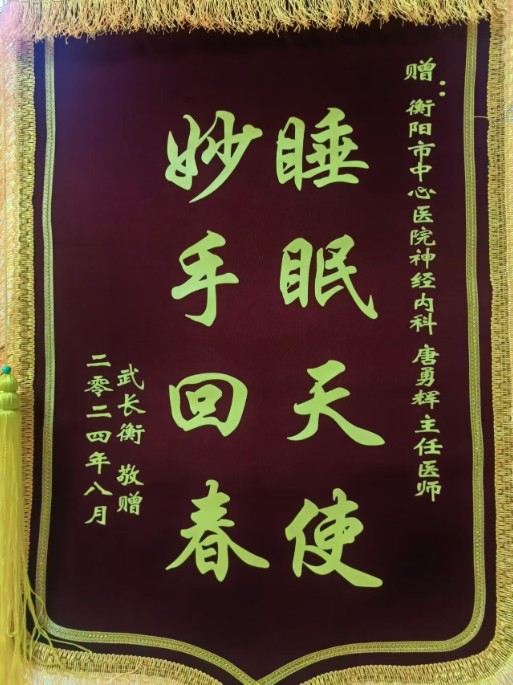 赠：衡阳市中心医院神经内科 唐勇辉 主任医师
睡眠天使
妙手回春
武长衡 敬赠
二零二四年八月